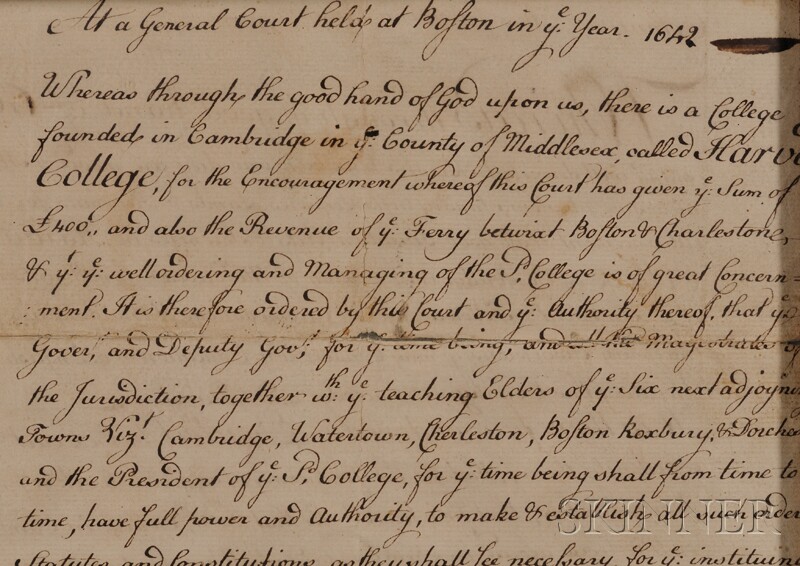 At a General Court held at Boston in yͤ Year. 1642
Whereas through the good hand of God upon us, there is a College
founded in Cambridge in yͤ: County of Middlesex, called Harv
College, for the Encouragement whereof this Court has given yͤ: Sum of
£400,, and also the Revenue of yͤ: Ferry betwixt Boston & Charlestone,
& yͭ yͤ: well ordering and Managing of the Sͩ College is of great Concern=
:ment. It is therefore ordered by this Court and yͤ: Authority thereof, that yͤ
Goverͬ, and Deputy Govͬ, for yͤ: time being, and all the Magistrates of
the Jurisdiction, together wͭͪ: yͤ: teaching Elders of yͤ: Six next adjoyn
Towns Vizͭ. Cambridge, Watertown, Cherleston, Boston Roxbury, & Dorche
and the President of yͤ: Sͩ College, for yͤ: time being shall from time to
time, have full power and Authority, to make & establish all such order
Statutes and Constitutions, as they shall see necessary for yͤ: instituin
SKINNER